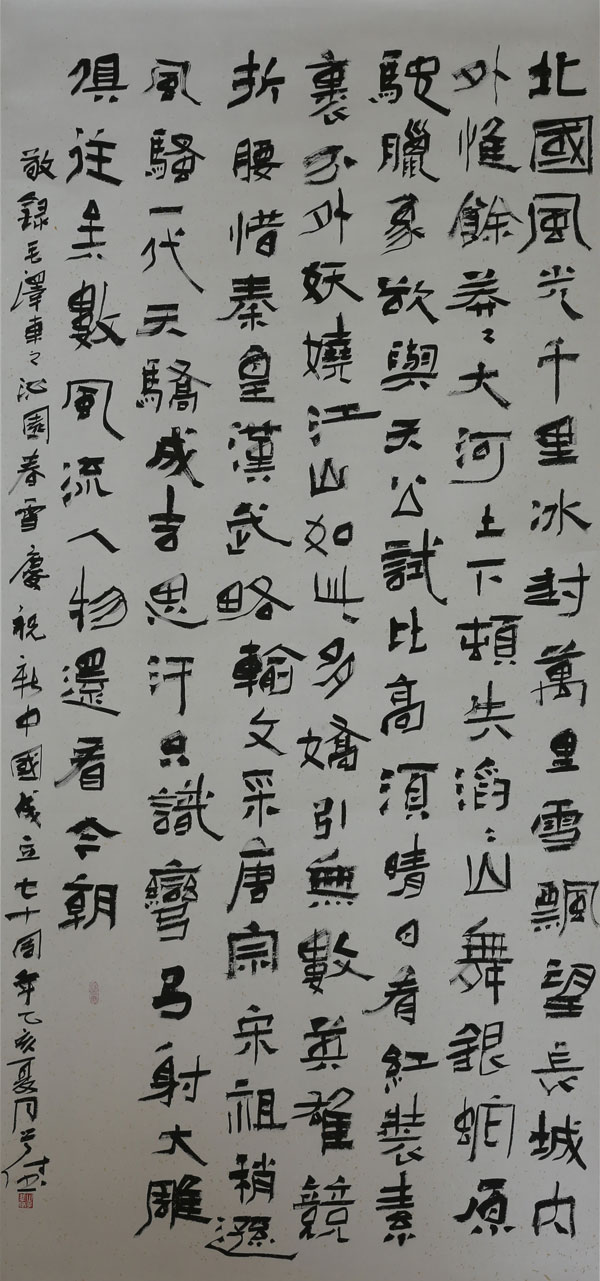 北國風光千里冰封萬里雪飄望長城内
外惟餘莽〻大河上下頓失滔〻山舞銀蛇原
馳臘象欲與天公試比高須晴日看紅裝素
裹分外妖嬈江山如此多嬌引無數英雄競
折腰惜秦皇漢武略輸文采唐宗宋祖稍遜
風騷一代天驕成吉思汗只識彎弓射大雕
俱往矣數風流人物還看今朝
敬錄毛澤東之沁園春雪慶祝新中國成立七十周年乙亥夏月